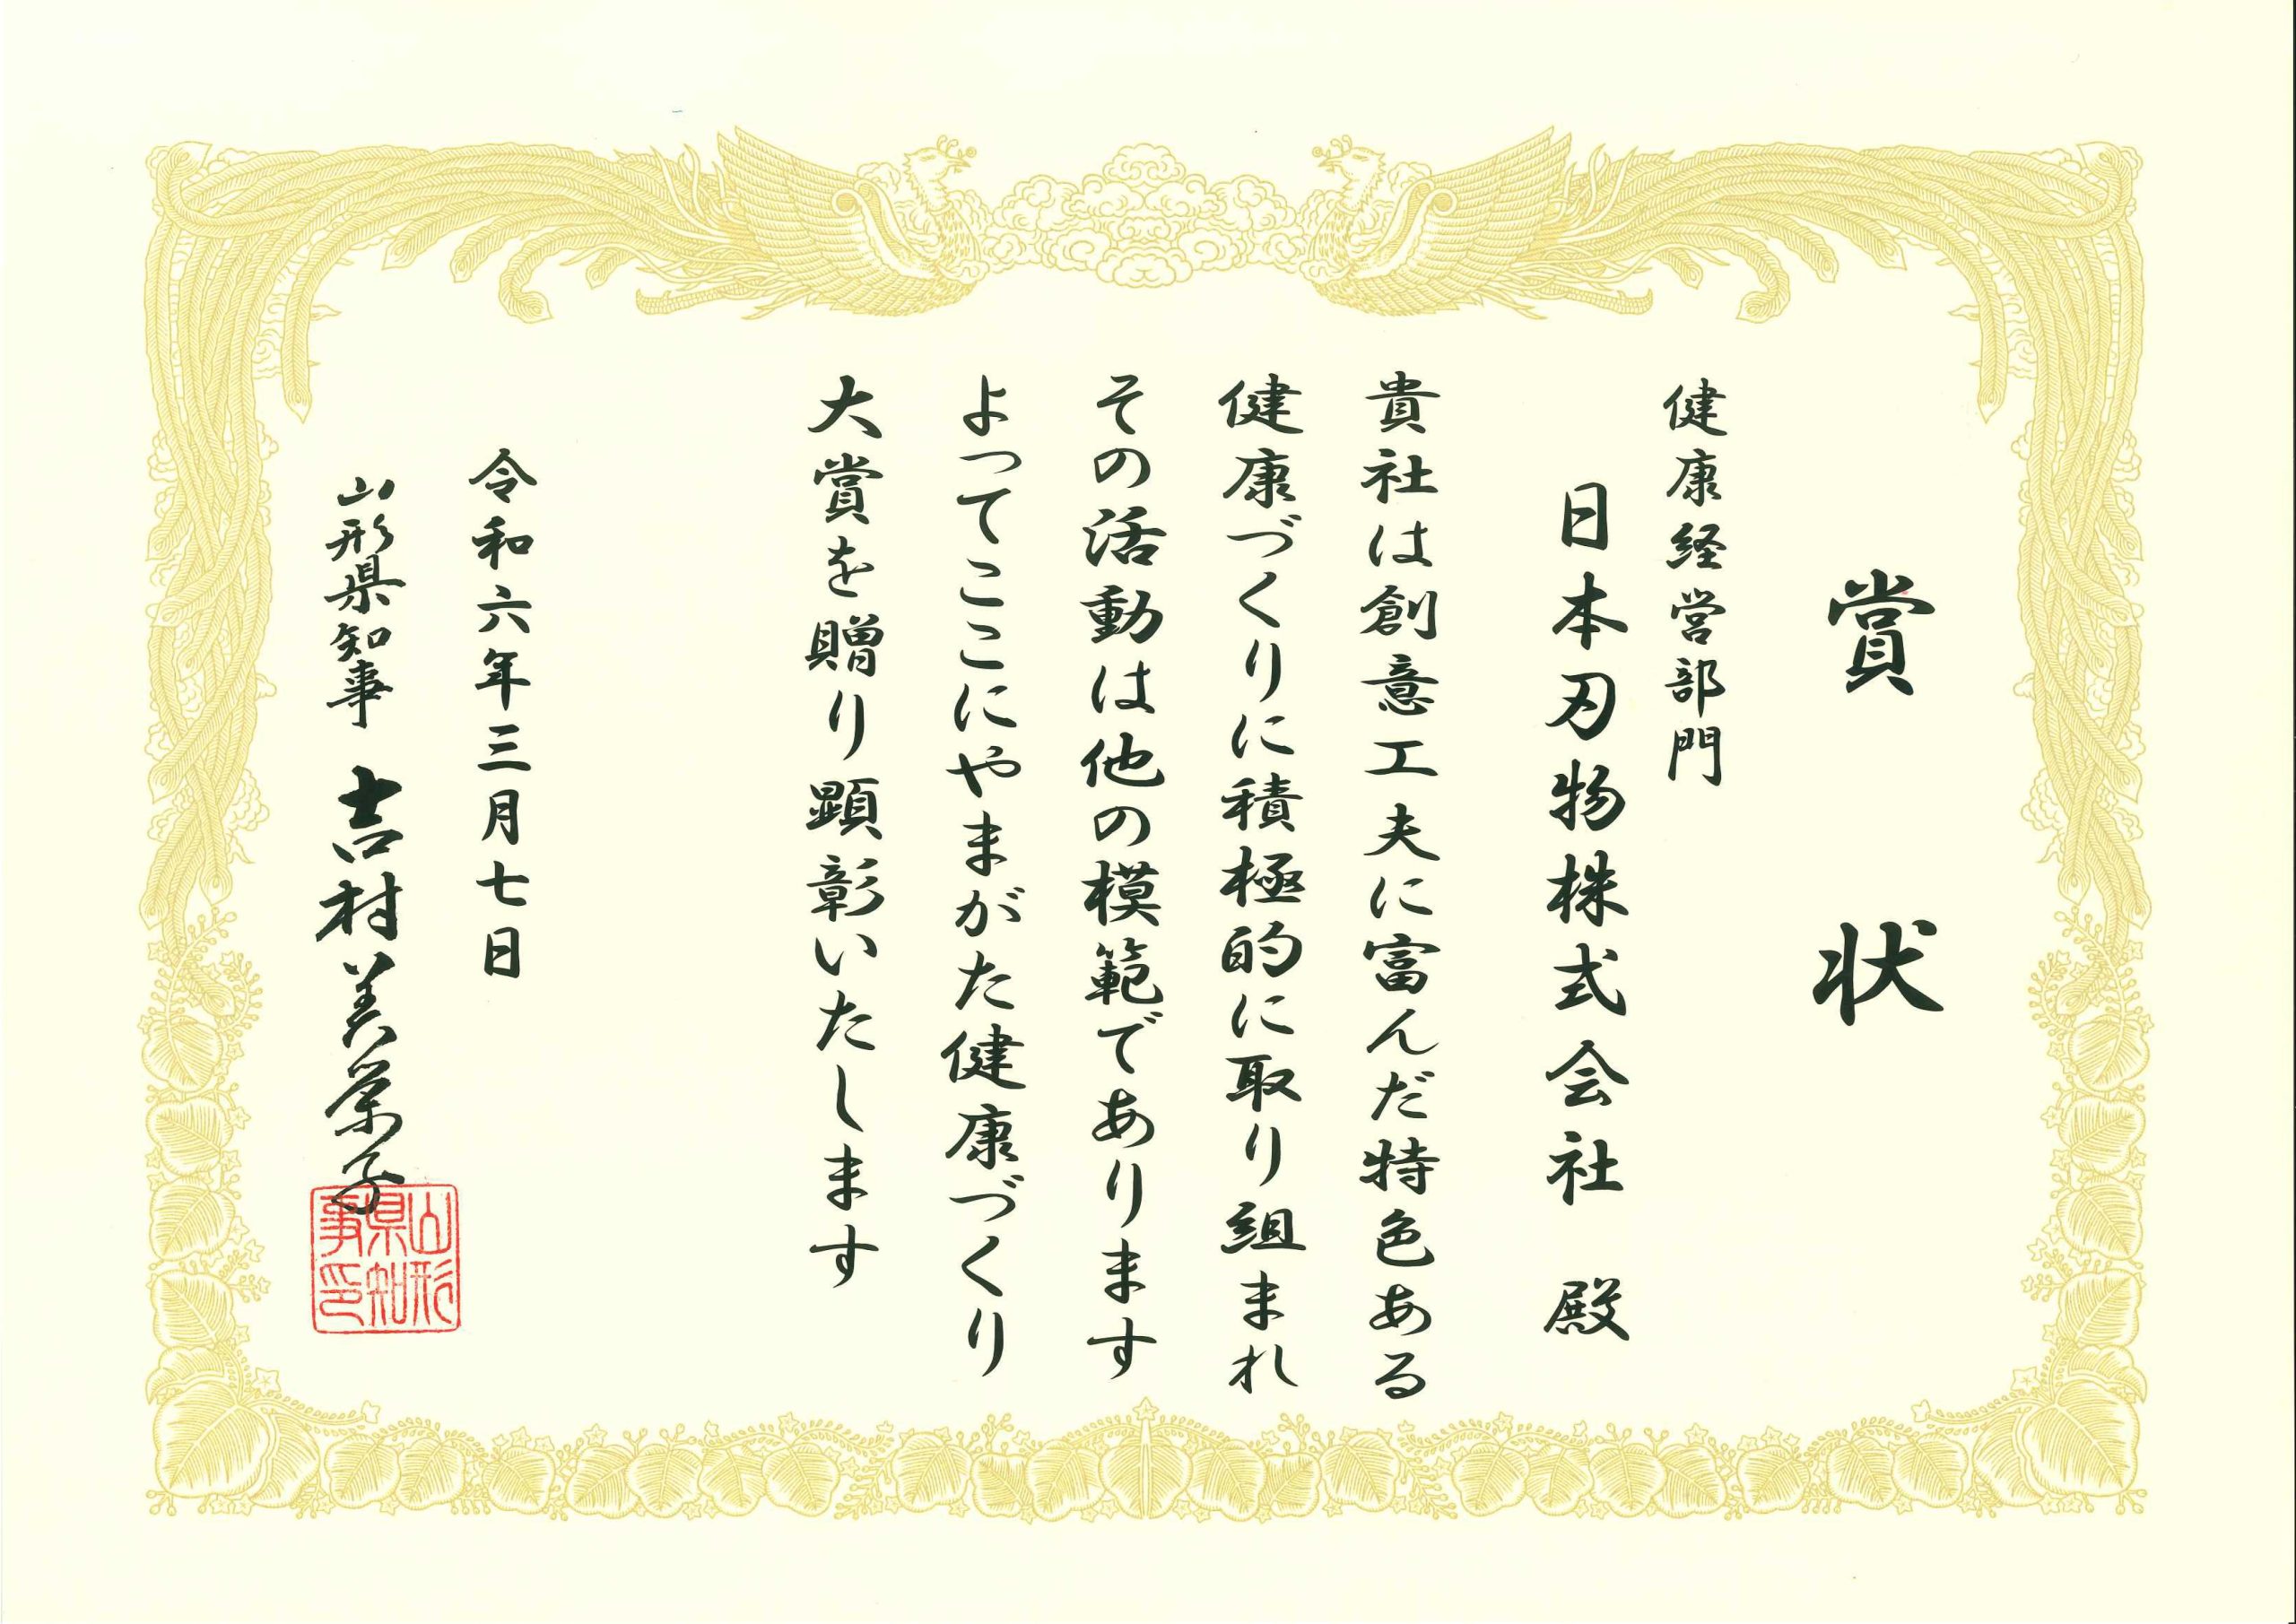 賞状
健康経営部門
日本刃物株式会社 殿
貴社は創意工夫に富んだ特色ある
健康づくりに積極的に取り組まれ
その活動は他の模範であります
よってここにやまがた健康づくり
大賞を贈り顕彰いたします
令和六年三月七日
山形県知事 吉村美栄子
山形県知事印